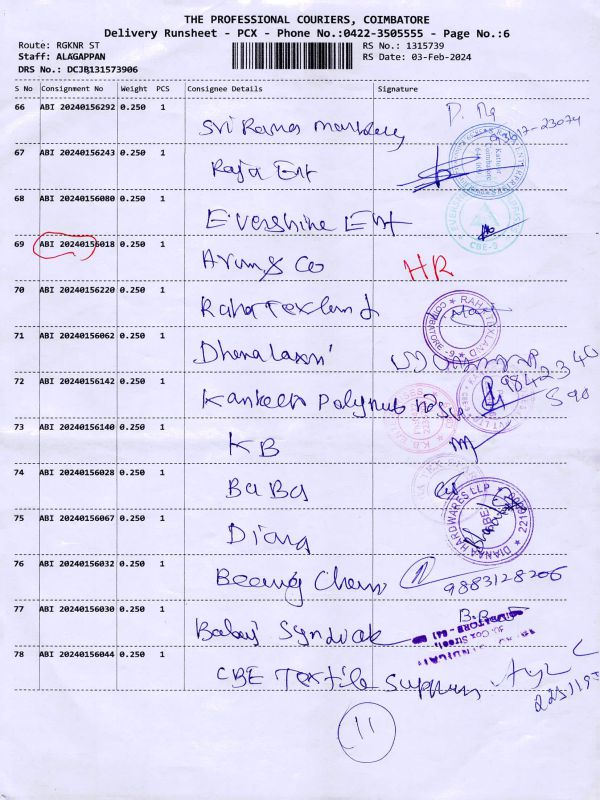 THE PROFESSIONAL COURIERS, COIMBATORE
Delivery Runsheet - PCX - Phone No.:0422-3505555 - Page No.:6
Route: RGKNR ST RS No.: 1315739
Staff: ALAGAPPAN RS Date: 03-Feb-2024
DRS No.: DCJB131573906
S No Consignment No Weight PCS Consignee Details Signature
66 ABI 20240156292 0.250 1
Sri Rama
67 ABI 20240156243 0.250 1
Raja Ent
68 ABI 20240156080 0.250 1
Evershine Ent
CBE-9
69 ABI 20240156018 0.250 1
Arun & Co HR
70 ABI 20240156220 0.250 1
Raha Texland
RAHA TEXLAND COIMBATORE
71 ABI 20240156062 0.250 1
Dhanalaxmi
72 ABI 20240156142 0.250 1
9842340
590
73 ABI 20240156140 0.250 1
KB
74 ABI 20240156028 0.250 1
BaBa
75 ABI 20240156067 0.250 1
Diana
DIANAA HARDWARES LLP
76 ABI 20240156032 0.250 1
Chem 9883128206
77 ABI 20240156030 0.250 1
Balaji
78 ABI 20240156044 0.250 1
CBE Textile
11